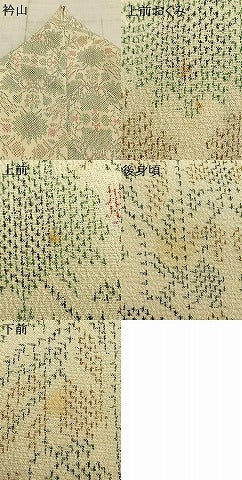 衿山
上前おくみ
上前
後身頃
下前